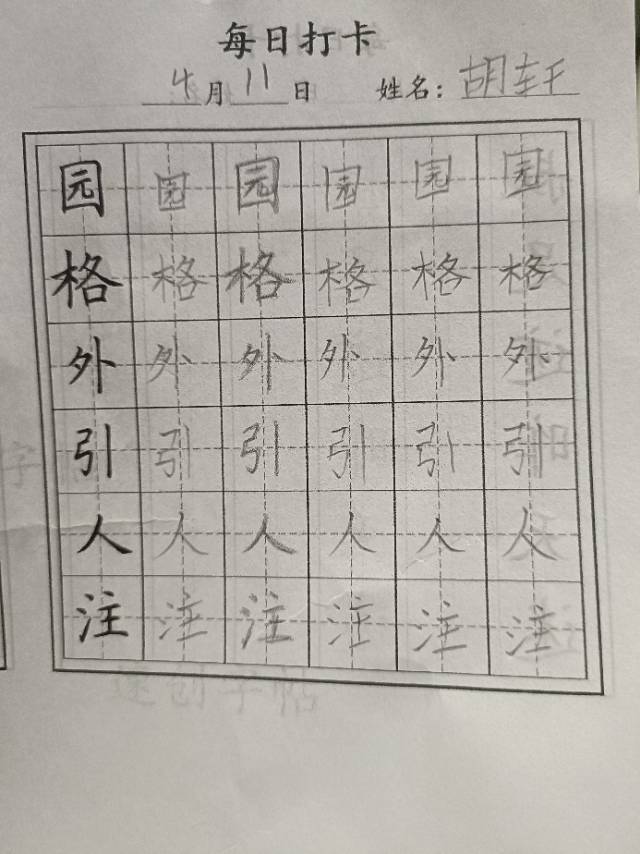 每日打卡
4月11日 姓名：胡轩
园园园园园园
格格格格格格
外外外外外外
引引引引引引
人人人人人人
注注注注注注